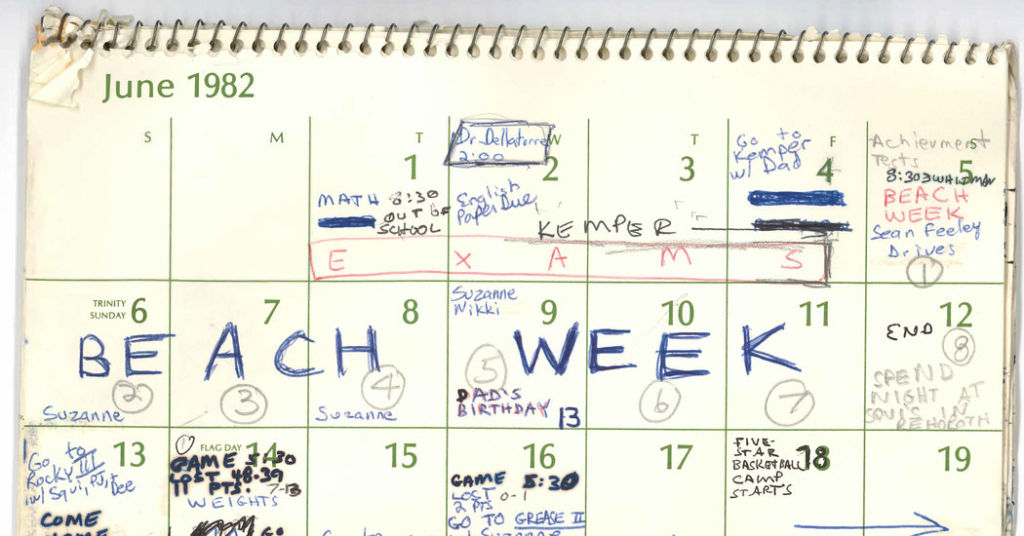 June 1982
S M T W T F S
1
MATH 8:30
OUT OF
SCHOOL
Dr. Dellatorre
2:00
2
English
Paper Due
3
KEMPER
Go to
Kemper
w/ Dad
4
Achievment
Tests
5
8:30
BEACH
WEEK
Sean Feeley
Drives
1
E X A M S
TRINITY
SUNDAY 6
7
8
Suzanne
Nikki
9
10
11
12
END
BEACH WEEK
2
3
4
5
6
7
8
Suzanne
Suzanne
DAD'S
BIRTHDAY 13
SPEND
NIGHT AT
SQUI'S IN
REHOBOTH
13
Go to
Rocky III
w/ Squi, PJ,
COME
1
FLAG DAY 14
GAME
LOST 48-39
11 PTS. 7-13
WEIGHTS
GO
15
16
GAME 5:30
LOST 0-1
2 PTS
GO TO GREASE II
w/ Suzanne
17
FIVE-
STAR
BASKETBALL
CAMP
STARTS
18
19